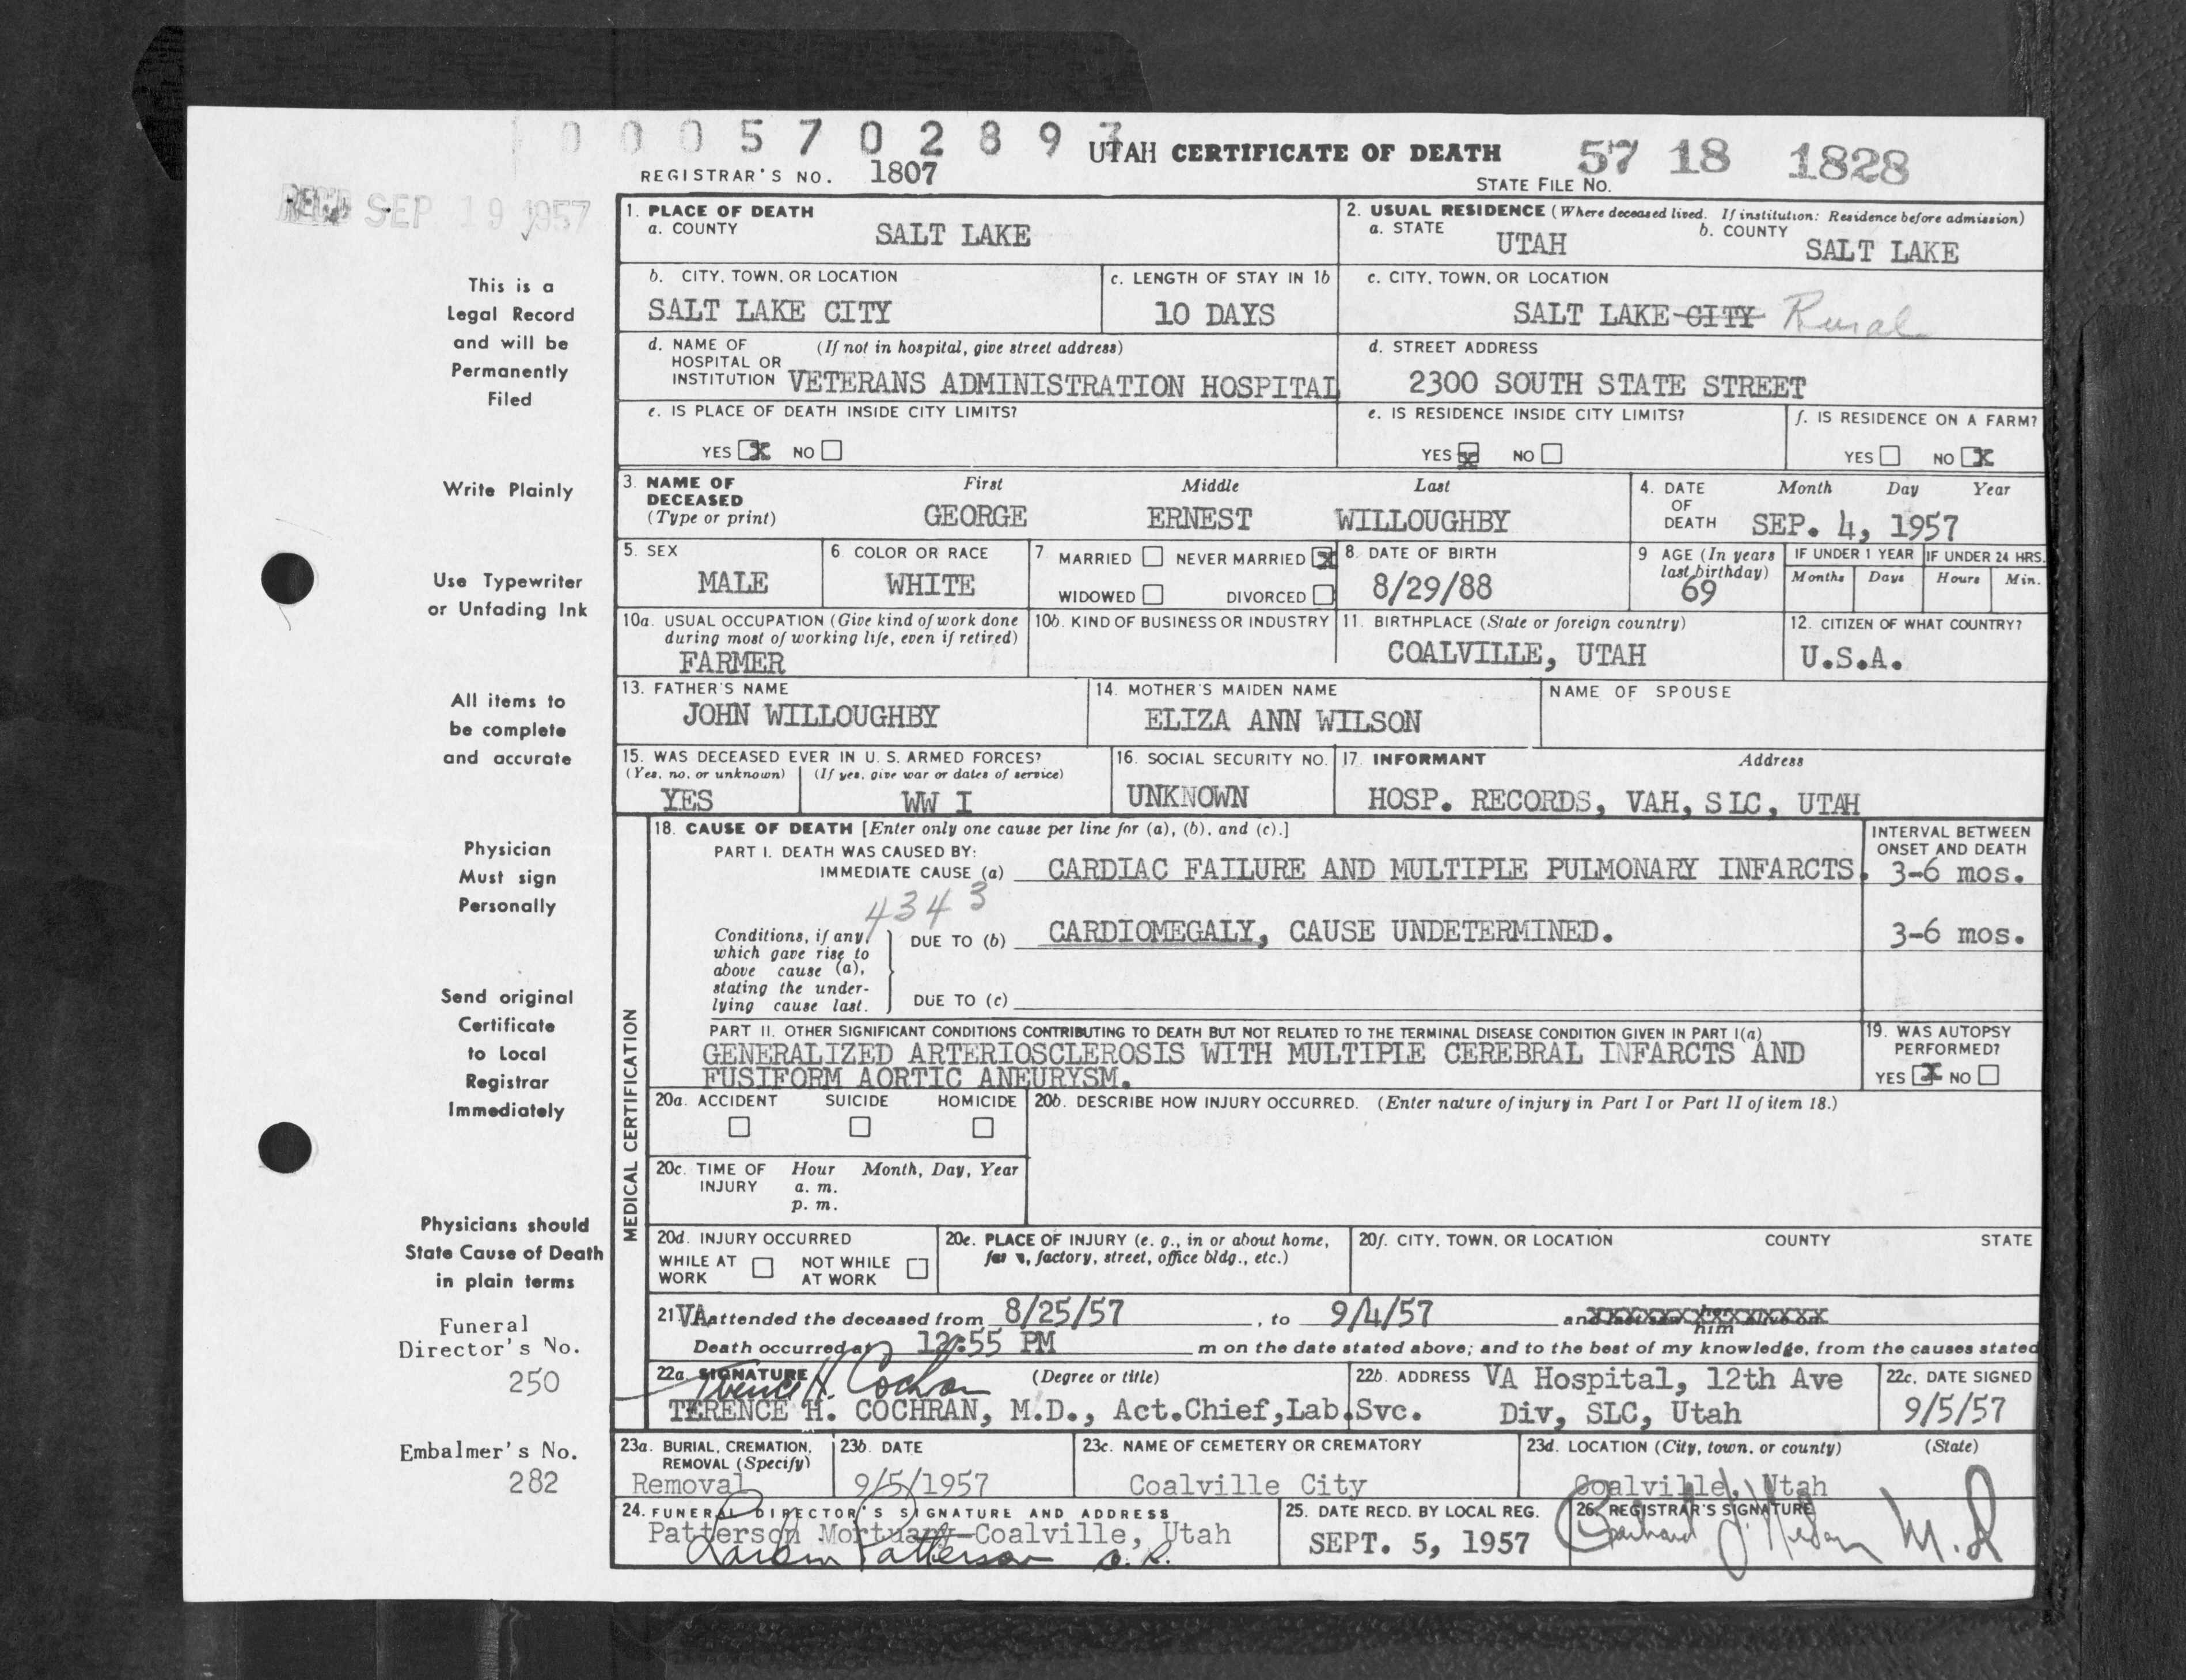 0 0 0 5 7 0 2 8 9 3
UTAH CERTIFICATE OF DEATH
57 18 1828
REGISTRAR'S NO. 1807
STATE FILE No.
REC'D SEP 19 1957
This is a
Legal Record
and will be
Permanently
Filed
Write Plainly
Use Typewriter
or Unfading Ink
All items to
be complete
and accurate
Physician
Must sign
Personally
Send original
Certificate
to Local
Registrar
Immediately
Physicians should
State Cause of Death
in plain terms
Funeral
Director's No.
250
Embalmer's No.
282
1. PLACE OF DEATH
a. COUNTY
SALT LAKE
2. USUAL RESIDENCE (Where deceased lived. If institution: Residence before admission)
a. STATE
UTAH
b. COUNTY
SALT LAKE
b. CITY, TOWN, OR LOCATION
SALT LAKE CITY
c. LENGTH OF STAY IN 1b
10 DAYS
c. CITY, TOWN, OR LOCATION
SALT LAKE CITY Rural
d. NAME OF (If not in hospital, give street address)
HOSPITAL OR
INSTITUTION VETERANS ADMINISTRATION HOSPITAL
d. STREET ADDRESS
2300 SOUTH STATE STREET
e. IS PLACE OF DEATH INSIDE CITY LIMITS?
YES X NO
e. IS RESIDENCE INSIDE CITY LIMITS?
YES X NO
f. IS RESIDENCE ON A FARM?
YES NO X
3. NAME OF
DECEASED
(Type or print)
First Middle Last
GEORGE ERNEST WILLOUGHBY
4. DATE
OF
DEATH
Month Day Year
SEP. 4, 1957
5. SEX
MALE
6. COLOR OR RACE
WHITE
7. MARRIED NEVER MARRIED X
WIDOWED DIVORCED
8. DATE OF BIRTH
8/29/88
9 AGE (In years
last birthday)
69
IF UNDER 1 YEAR
Months Days
IF UNDER 24 HRS.
Hours Min.
10a. USUAL OCCUPATION (Give kind of work done
during most of working life, even if retired)
FARMER
10b. KIND OF BUSINESS OR INDUSTRY
11. BIRTHPLACE (State or foreign country)
COALVILLE, UTAH
12. CITIZEN OF WHAT COUNTRY?
U.S.A.
13. FATHER'S NAME
JOHN WILLOUGHBY
14. MOTHER'S MAIDEN NAME
ELIZA ANN WILSON
NAME OF SPOUSE
15. WAS DECEASED EVER IN U. S. ARMED FORCES?
(Yes, no, or unknown) (If yes, give war or dates of service)
YES WW I
16. SOCIAL SECURITY NO.
UNKNOWN
17. INFORMANT Address
HOSP. RECORDS, VAH, SLC, UTAH
MEDICAL CERTIFICATION
18. CAUSE OF DEATH [Enter only one cause per line for (a), (b), and (c).]
PART I. DEATH WAS CAUSED BY:
IMMEDIATE CAUSE (a) CARDIAC FAILURE AND MULTIPLE PULMONARY INFARCTS.
INTERVAL BETWEEN
ONSET AND DEATH
3-6 mos.
4343
Conditions, if any,
which gave rise to
above cause (a),
stating the under-
lying cause last.
DUE TO (b) CARDIOMEGALY, CAUSE UNDETERMINED.
3-6 mos.
DUE TO (c)
PART II. OTHER SIGNIFICANT CONDITIONS CONTRIBUTING TO DEATH BUT NOT RELATED TO THE TERMINAL DISEASE CONDITION GIVEN IN PART I(a)
GENERALIZED ARTERIOSCLEROSIS WITH MULTIPLE CEREBRAL INFARCTS AND
FUSIFORM AORTIC ANEURYSM.
19. WAS AUTOPSY
PERFORMED?
YES X NO
20a. ACCIDENT SUICIDE HOMICIDE
20b. DESCRIBE HOW INJURY OCCURRED. (Enter nature of injury in Part I or Part II of item 18.)
20c. TIME OF Hour Month, Day, Year
INJURY a. m.
p. m.
20d. INJURY OCCURRED
WHILE AT NOT WHILE
WORK AT WORK
20e. PLACE OF INJURY (e. g., in or about home,
farm, factory, street, office bldg., etc.)
20f. CITY, TOWN, OR LOCATION COUNTY STATE
21. VA attended the deceased from 8/25/57, to 9/4/57 and last saw her him alive on
Death occurred at 12:55 PM m on the date stated above; and to the best of my knowledge, from the causes stated
22a. SIGNATURE (Degree or title)
Terence H. Cochran
TERENCE H. COCHRAN, M.D., Act.Chief,Lab.Svc.
22b. ADDRESS VA Hospital, 12th Ave
Div, SLC, Utah
22c. DATE SIGNED
9/5/57
23a. BURIAL, CREMATION,
REMOVAL (Specify)
Removal
23b. DATE
9/5/1957
23c. NAME OF CEMETERY OR CREMATORY
Coalville City
23d. LOCATION (City, town, or county) (State)
Coalville, Utah
24. FUNERAL DIRECTOR'S SIGNATURE AND ADDRESS
Patterson Mortuary-Coalville, Utah
Patterson
25. DATE RECD. BY LOCAL REG.
SEPT. 5, 1957
26. REGISTRAR'S SIGNATURE
M.D.